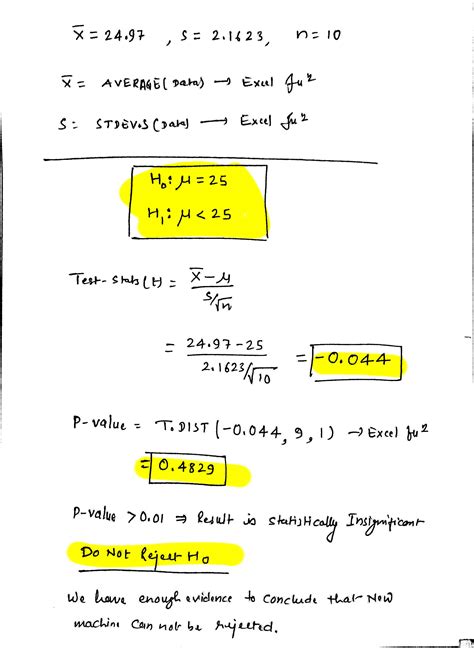 x̄ = 24.97 , S = 2.1623, n = 10
x̄ = AVERAGE(Data) → Excel fu²
S = STDEV.S(Data) → Excel fu²
H₀: μ = 25
H₁: μ < 25
Test-stats (t) = x̄-μ
S/√n
= 24.97-25
2.1623/√10
= -0.044
P-value = T.DIST(-0.044, 9, 1) → Excel fu²
= 0.4829
P-value > 0.01 ⇒ Result is statistically Insignificant
Do Not Reject H₀
We have enough evidence to conclude that New
machine can not be rejected.